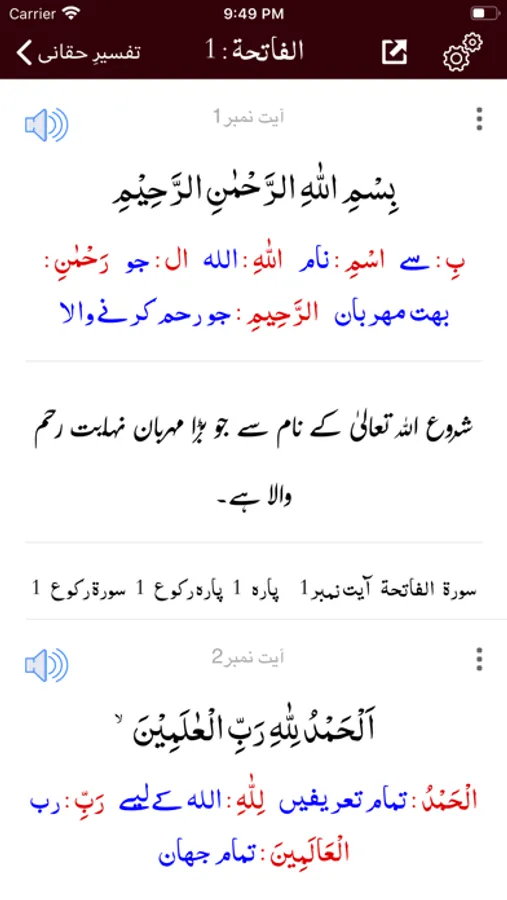 Carrier 9:49 PM
تفسیرِ حقانی الفاتحة : 1
آیت نمبر1
بِسْمِ اللّٰهِ الرَّحْمٰنِ الرَّحِیْمِ
بِ : سے اسْمِ : نام اللّٰهِ : الله ال : جو رَحْمٰنِ :
بهت مهربان الرَّحِيمِ : جو رحم کرنے والا
شروع اللہ تعالیٰ کے نام سے جو بڑا مہربان نہایت رحم
والا ہے۔
سورة الفاتحة آیت نمبر1 پاره 1 پاره رکوع 1 سورة رکوع 1
آیت نمبر2
اَلْحَمْدُ لِلّٰهِ رَبِّ الْعٰلَمِیْنَ ۙ
الْحَمْدُ : تمام تعریفیں لِلّٰهِ : الله کے لیے رَبِّ : رب
الْعَالَمِينَ : تمام جهان